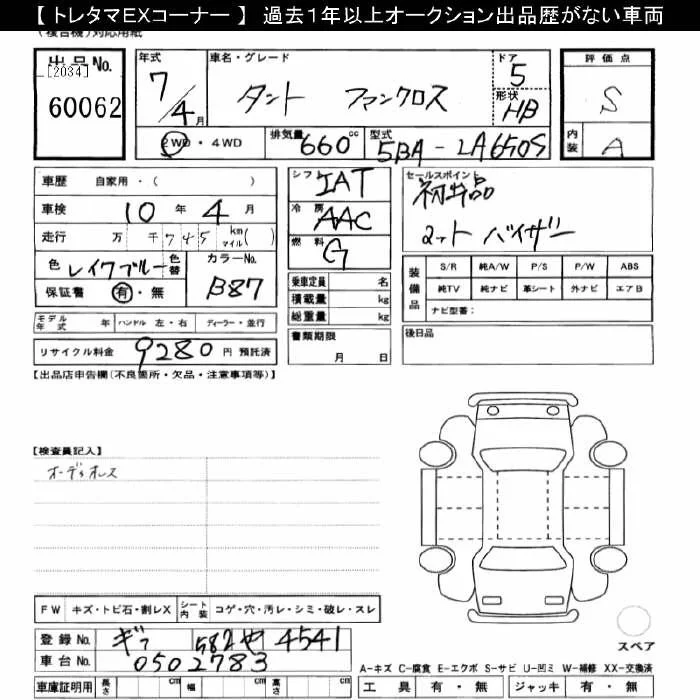 【 トレタマEXコーナー 】 過去1年以上オークション出品歴がない車両
(複合機)対応用紙
出品No.
[2034]
60062
年式
7/4月
車名・グレード
タント ファンクロス
ドア
5
形状
HB
評価点
S
内装
A
2WD・4WD
排気量 660 cc
型式 5BA-LA650S
車歴 自家用・( )
車検 10年4月
走行 万千745 km マイル( )
色 レイクブルー 色替
カラーNo.
B87
保証書 有・無
シフト IAT
冷房 AAC
燃料 G
セールスポイント
初出品
マット バイザー
乗車定員 名
積載量 kg
総重量 kg
書類期限
月 日
装備品
S/R 純A/W P/S P/W ABS
純TV 純ナビ 革シート 外ナビ エアB
ナビ型番:
後日品
モデル年式 年 ハンドル 左・右 ディーラー・並行
リサイクル料金 9280 円 預託済
【出品店申告欄(不良箇所・欠品・注意事項等)】
【検査員記入】
オーディオレス
FW キズ・トビ石・割レX シート内装 コゲ・穴・汚レ・シミ・破レ・スレ
登録No. ギフ 582 や 4541
車台No. 0502783
車庫証明用 長さ cm 幅 cm 高さ cm
スペア
A-キズ C-腐食 E-エクボ S-サビ U-凹ミ W-補修 XX-交換済
工具 有・無 ジャッキ 有・無